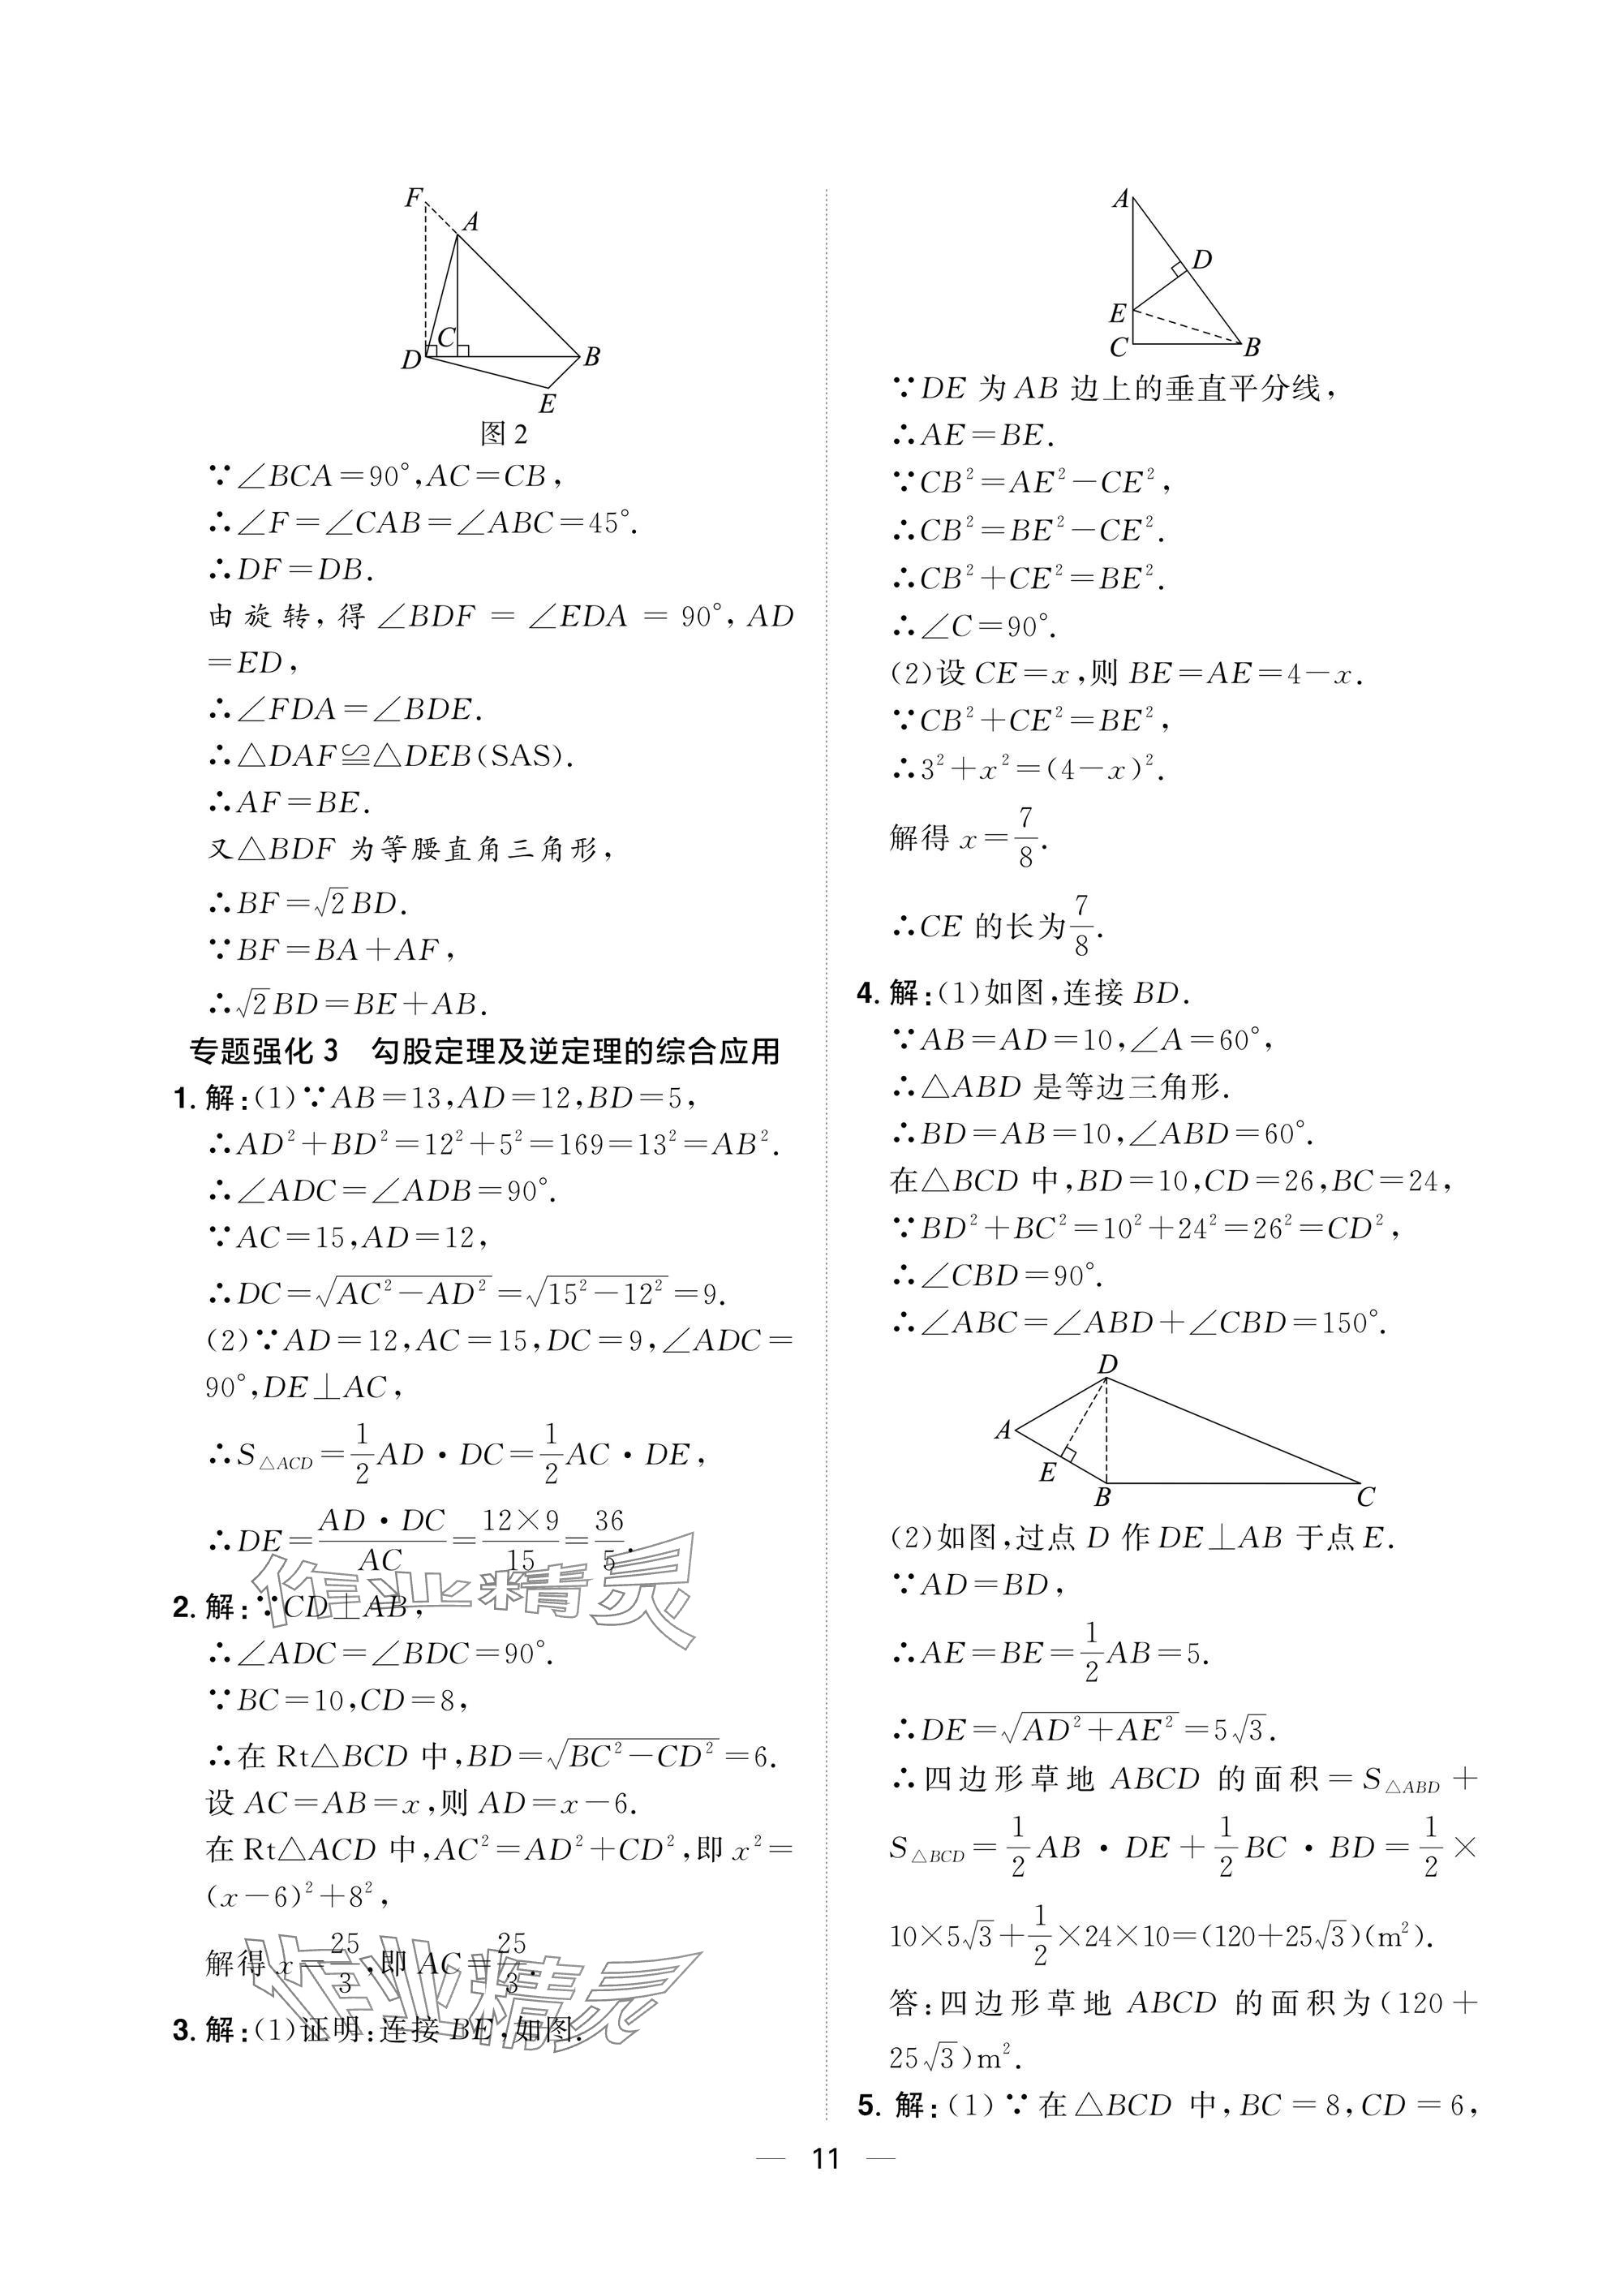 F
A
C
D
B
E
图 2
∵∠BCA=90°,AC=CB,
∴∠F=∠CAB=∠ABC=45°.
∴DF=DB.
由旋转,得∠BDF=∠EDA=90°,AD
=ED,
∴∠FDA=∠BDE.
∴△DAF≌△DEB(SAS).
∴AF=BE.
又△BDF 为等腰直角三角形,
∴BF=√2BD.
∵BF=BA+AF,
∴√2BD=BE+AB.
专题强化 3 勾股定理及逆定理的综合应用
1. 解:(1)∵AB=13,AD=12,BD=5,
∴AD²+BD²=12²+5²=169=13²=AB².
∴∠ADC=∠ADB=90°.
∵AC=15,AD=12,
∴DC=√(AC²-AD²)=√(15²-12²)=9.
(2)∵AD=12,AC=15,DC=9,∠ADC=
90°,DE⊥AC,
∴S△ACD=1/2AD·DC=1/2AC·DE,
∴DE=AD·DC/AC=12×9/15=36/5.
2. 解:∵CD⊥AB,
∴∠ADC=∠BDC=90°.
∵BC=10,CD=8,
∴在 Rt△BCD 中,BD=√(BC²-CD²)=6.
设 AC=AB=x,则 AD=x-6.
在 Rt△ACD 中,AC²=AD²+CD²,即 x²=
(x-6)²+8²,
解得 x=25/3,即 AC=25/3.
3. 解:(1)证明:连接 BE,如图.
作业精灵
作业精灵
A
D
E
C
B
∵DE 为 AB 边上的垂直平分线,
∴AE=BE.
∵CB²=AE²-CE²,
∴CB²=BE²-CE².
∴CB²+CE²=BE².
∴∠C=90°.
(2)设 CE=x,则 BE=AE=4-x.
∵CB²+CE²=BE²,
∴3²+x²=(4-x)².
解得 x=7/8.
∴CE 的长为7/8.
4. 解:(1)如图,连接 BD.
∵AB=AD=10,∠A=60°,
∴△ABD 是等边三角形.
∴BD=AB=10,∠ABD=60°.
在△BCD 中,BD=10,CD=26,BC=24,
∵BD²+BC²=10²+24²=26²=CD²,
∴∠CBD=90°.
∴∠ABC=∠ABD+∠CBD=150°.
D
A
E
B
C
(2)如图,过点 D 作 DE⊥AB 于点 E.
∵AD=BD,
∴AE=BE=1/2AB=5.
∴DE=√(AD²+AE²)=5√3.
∴四边形草地 ABCD 的面积=S△ABD+
S△BCD=1/2AB·DE+1/2BC·BD=1/2×
10×5√3+1/2×24×10=(120+25√3)(m²).
答:四边形草地 ABCD 的面积为(120+
25√3)m².
5. 解:(1)∵在△BCD 中,BC=8,CD=6,
— 11 —